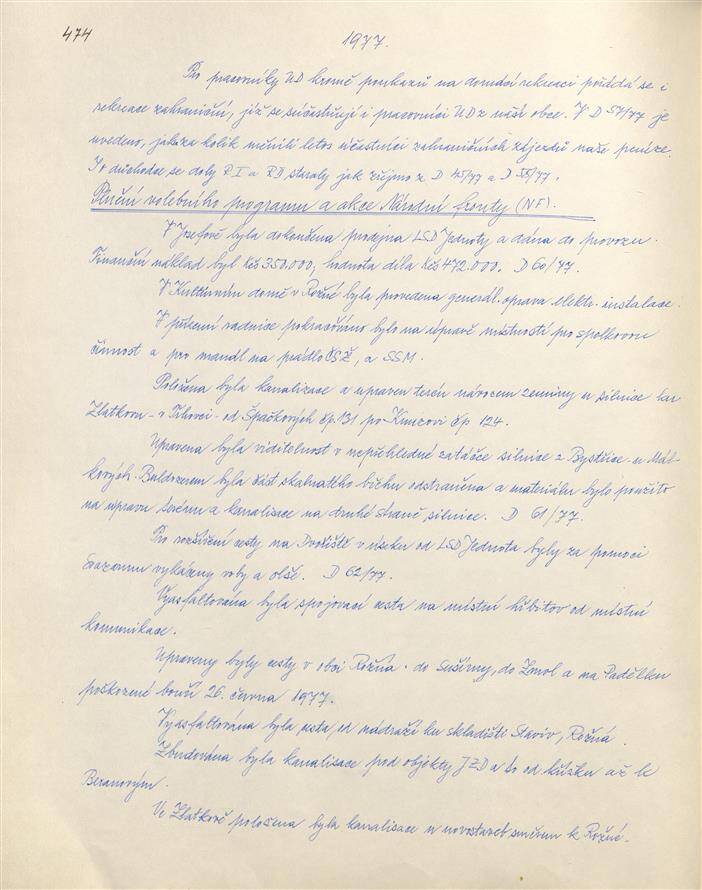 474
1977.
Pro pracovníky UD kromě poukazů na domácí rekreaci pořádá se i
rekreace zahraniční, již se súčastňují i pracovníci UD z naší obce. V D 57/77 je
uvedeno, jak za kolik měnili letos účastníci zahraničních zájezdů naše peníze.
I o důchodce se doly R I a R II staraly jak zřejmo z D 45/77 a D 55/77.
Plnění volebního programu a akce Národní fronty (NF).
V Josefově byla dokončena prodejna LSD Jednoty a dána do provozu.
Finanční náklad byl Kčs 350.000, hodnota díla Kčs 472.000. D 60/77.
V Kulturním domě v Rožné byla provedena generál. oprava elektr. instalace.
V přízemí radnice pokračováno bylo na úpravě místností pro spolkovou
činnost a pro mandl na prádlo ČSŽ, a SSM.
Položena byla kanalizace a upraven terén návozem zeminy u silnice ku
Zlatkovu - v Trhovci - od Špačkových čp. 131 po Kinzovi čp 124.
Upravena byla viditelnost v nepřehledné zatáčce silnice z Bystřice u Mát-
kových. Buldozerem byla část skalnatého břehu odstraněna a materiálu bylo použito
na úpravu terénu a kanalisace na druhé straně silnice. D 61/77.
Pro rozšíření cesty na Dvořiště v úseku od LSD Jednota byly za pomoci
Svazarmu vykáceny vrby a olše. D 62/77.
Vyasfaltována byla spojovací cesta na místní hřbitov od místní
komunikace.
Upraveny byly cesty v obci Rožná. do Sušírny, do Zmol a na Padělku
poškozené bouří 26. června 1977.
Vyasfaltována byla cesta od nádraží ku skladišti Staviv, Rožná.
Zbudována byla kanalisace pod objekty JZD a to od křížku až k
Beranovým.
Ve Zlatkově položena byla kanalisace u novostaveb směrem k Rožné.